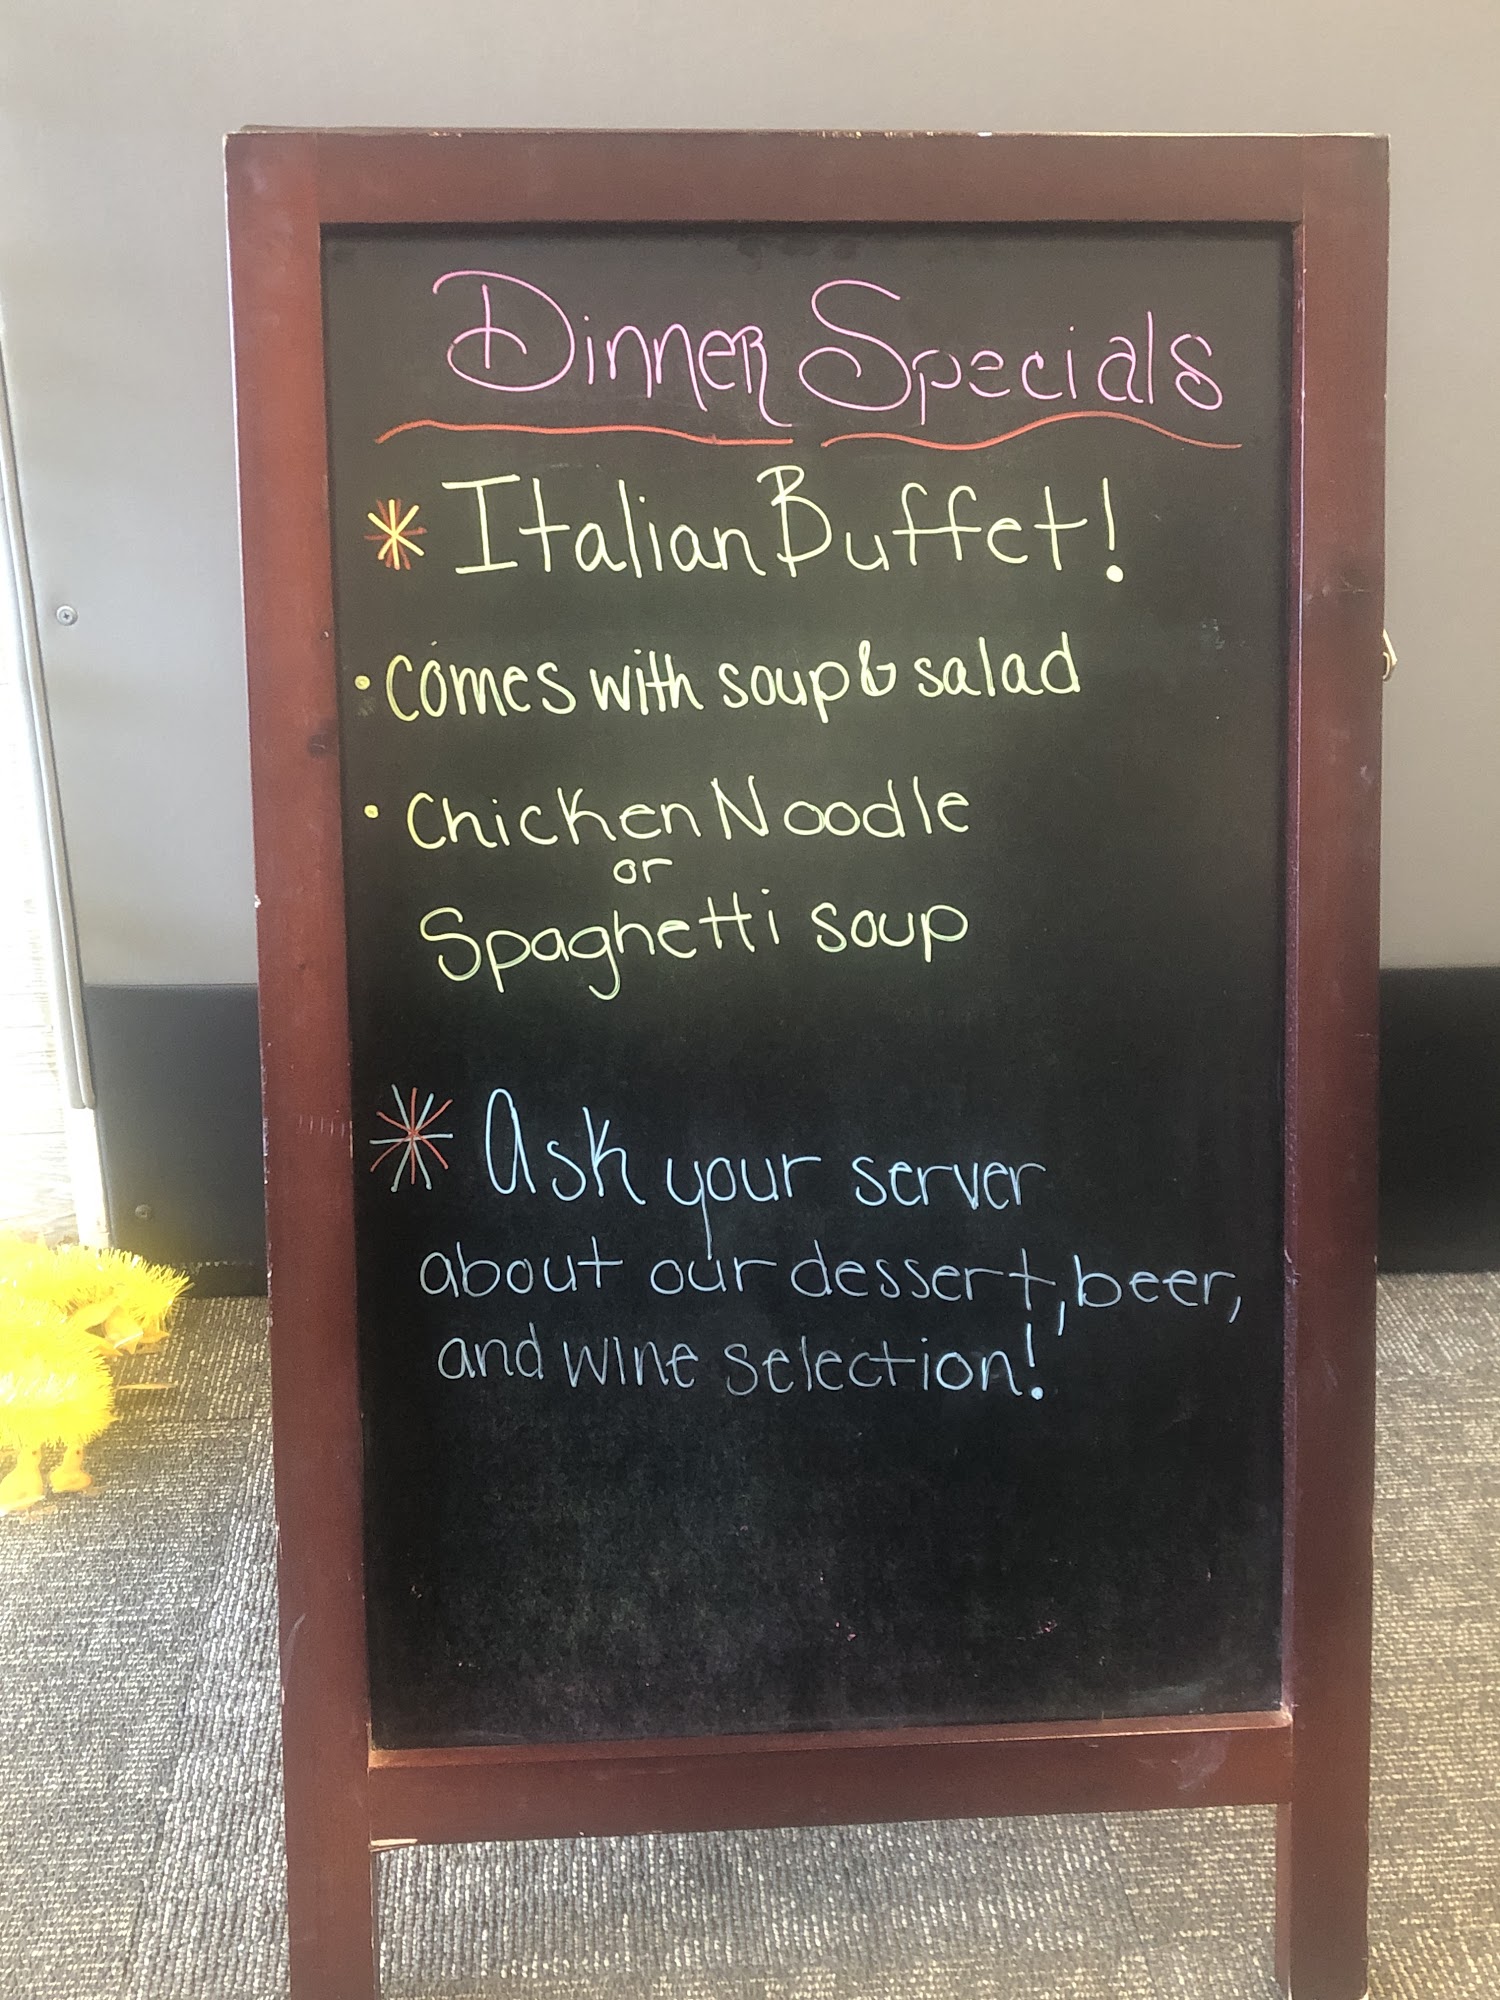 Dinner Specials
* Italian Buffet!
• Comes with soup & salad
• Chicken Noodle
or
Spaghetti soup
* Ask your server
about our dessert, beer,
and wine selection!